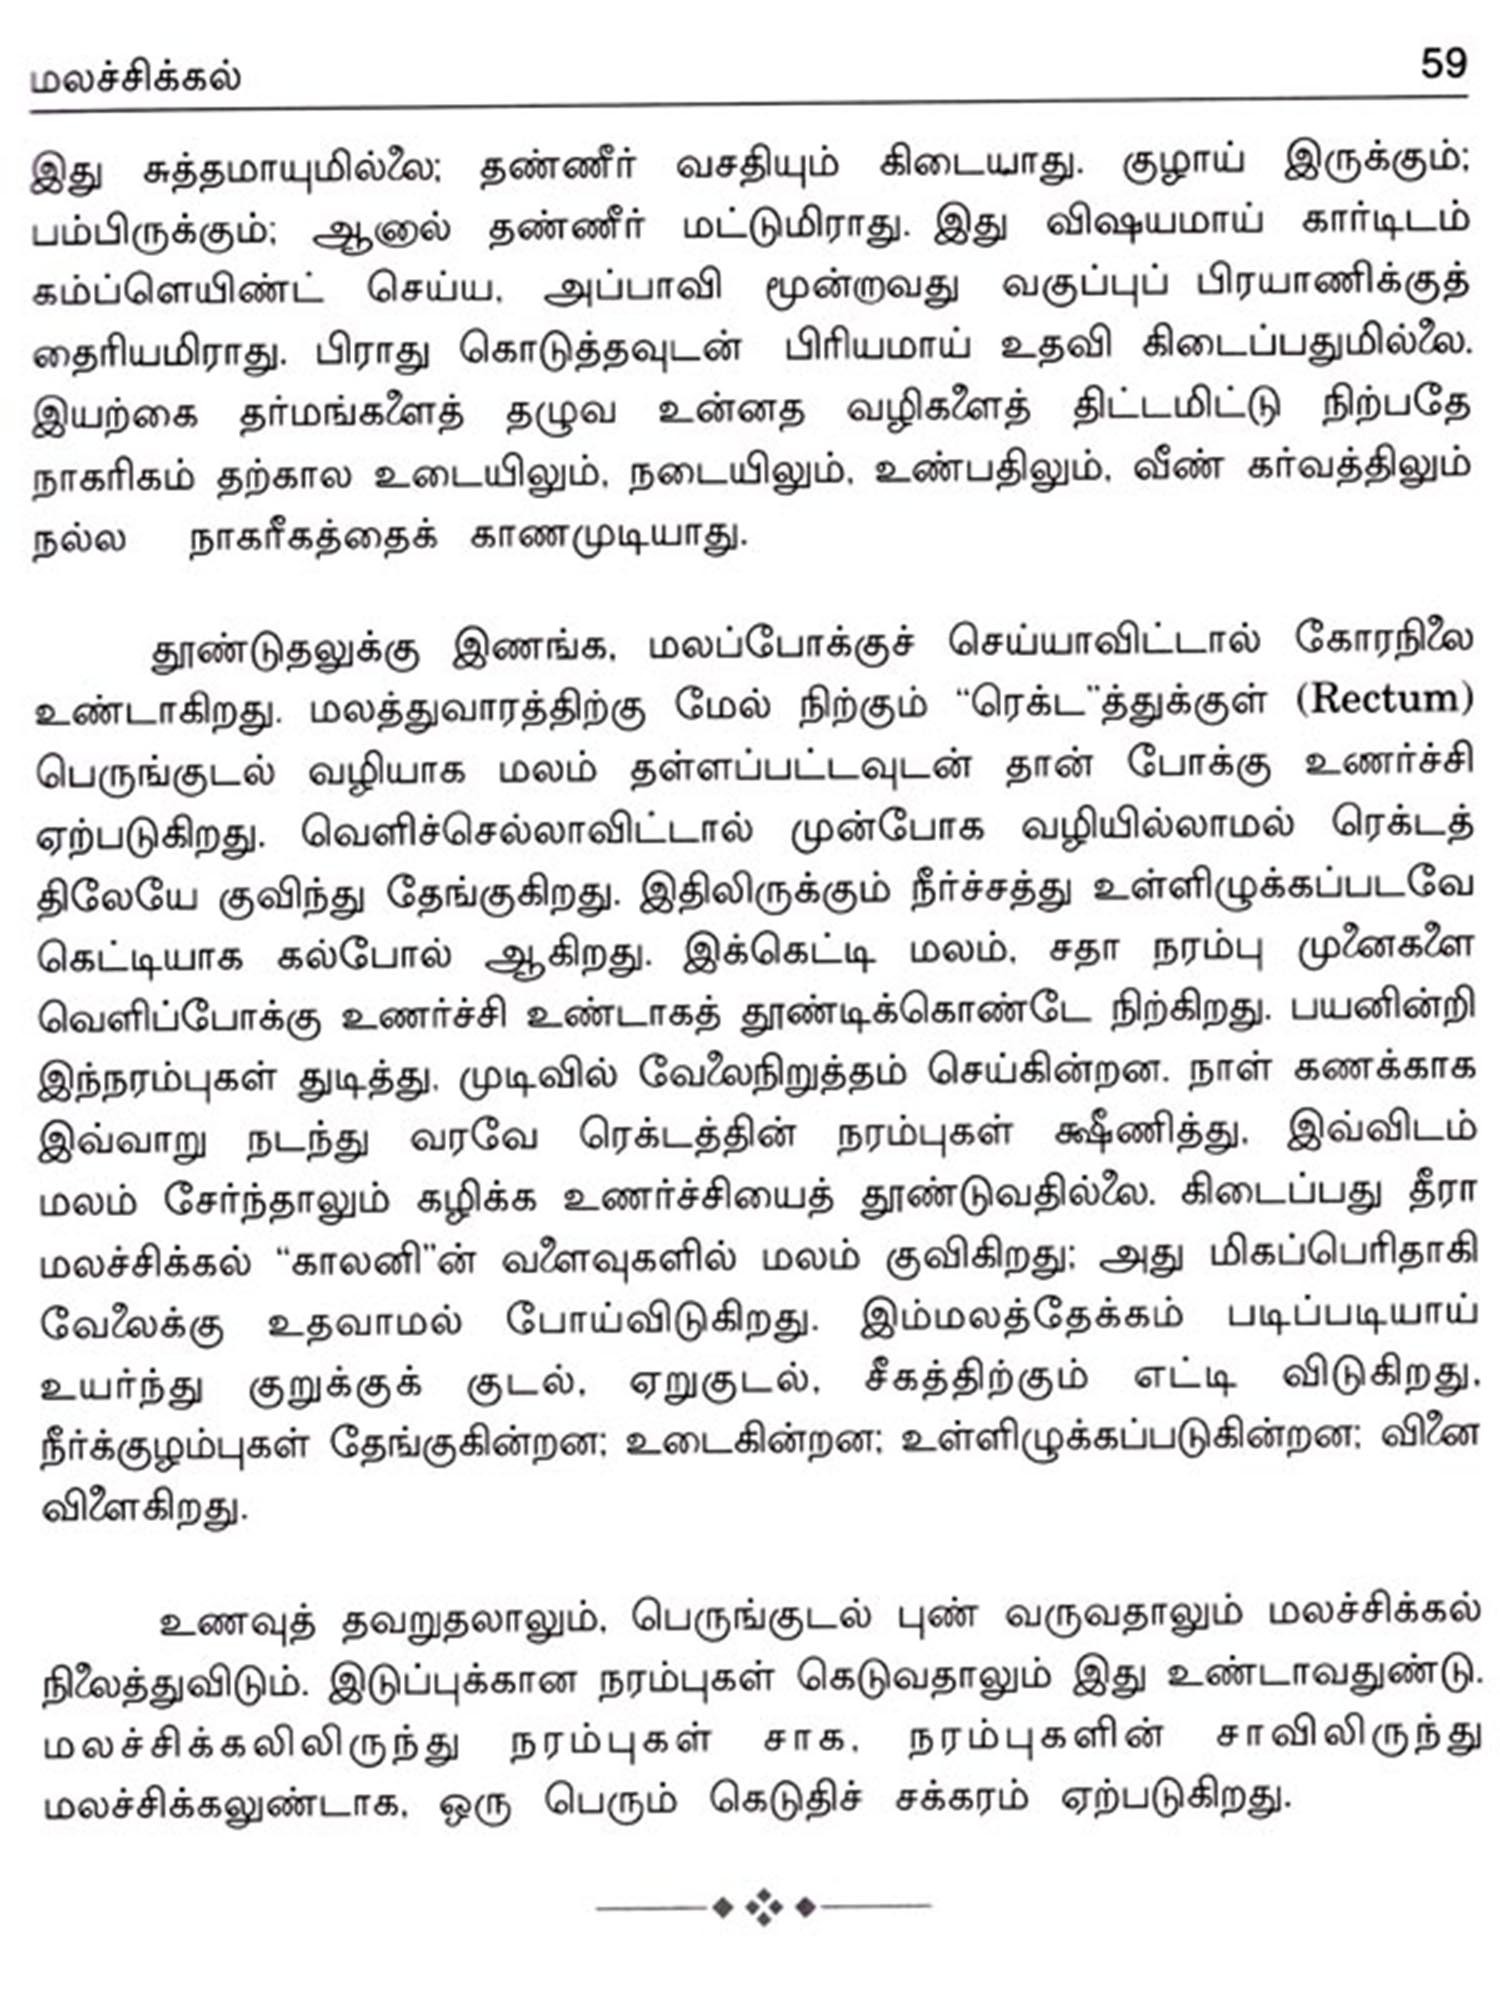 மலச்சிக்கல் 59
இது சுத்தமாயுமில்லை; தண்ணீர் வசதியும் கிடையாது. குழாய் இருக்கும்;
பம்பிருக்கும்; ஆனால் தண்ணீர் மட்டுமிராது. இது விஷயமாய் கார்டிடம்
கம்ப்ளெயிண்ட் செய்ய, அப்பாவி மூன்றாவது வகுப்புப் பிரயாணிக்குத்
தைரியமிராது. பிராது கொடுத்தவுடன் பிரியமாய் உதவி கிடைப்பதுமில்லை.
இயற்கை தர்மங்களைத் தழுவ உன்னத வழிகளைத் திட்டமிட்டு நிற்பதே
நாகரிகம் தற்கால உடையிலும், நடையிலும், உண்பதிலும், வீண் கர்வத்திலும்
நல்ல நாகரீகத்தைக் காணமுடியாது.
தூண்டுதலுக்கு இணங்க, மலப்போக்குச் செய்யாவிட்டால் கோரநிலை
உண்டாகிறது. மலத்துவாரத்திற்கு மேல் நிற்கும் “ரெக்ட”த்துக்குள் (Rectum)
பெருங்குடல் வழியாக மலம் தள்ளப்பட்டவுடன் தான் போக்கு உணர்ச்சி
ஏற்படுகிறது. வெளிச்செல்லாவிட்டால் முன்போக வழியில்லாமல் ரெக்டத்
திலேயே குவிந்து தேங்குகிறது. இதிலிருக்கும் நீர்ச்சத்து உள்ளிழுக்கப்படவே
கெட்டியாக கல்போல் ஆகிறது. இக்கெட்டி மலம், சதா நரம்பு முனைகளை
வெளிப்போக்கு உணர்ச்சி உண்டாகத் தூண்டிக்கொண்டே நிற்கிறது. பயனின்றி
இந்நரம்புகள் துடித்து, முடிவில் வேலைநிறுத்தம் செய்கின்றன. நாள் கணக்காக
இவ்வாறு நடந்து வரவே ரெக்டத்தின் நரம்புகள் க்ஷீணித்து, இவ்விடம்
மலம் சேர்ந்தாலும் கழிக்க உணர்ச்சியைத் தூண்டுவதில்லை. கிடைப்பது தீரா
மலச்சிக்கல் “காலனி”ன் வளைவுகளில் மலம் குவிகிறது; அது மிகப்பெரிதாகி
வேலைக்கு உதவாமல் போய்விடுகிறது. இம்மலத்தேக்கம் படிப்படியாய்
உயர்ந்து குறுக்குக் குடல், ஏறுகுடல், சீகத்திற்கும் எட்டி விடுகிறது,
நீர்க்குழம்புகள் தேங்குகின்றன; உடைகின்றன; உள்ளிழுக்கப்படுகின்றன; வினை
விளைகிறது.
உணவுத் தவறுதலாலும், பெருங்குடல் புண் வருவதாலும் மலச்சிக்கல்
நிலைத்துவிடும். இடுப்புக்கான நரம்புகள் கெடுவதாலும் இது உண்டாவதுண்டு.
மலச்சிக்கலிலிருந்து நரம்புகள் சாக, நரம்புகளின் சாவிலிருந்து
மலச்சிக்கலுண்டாக, ஒரு பெரும் கெடுதிச் சக்கரம் ஏற்படுகிறது.